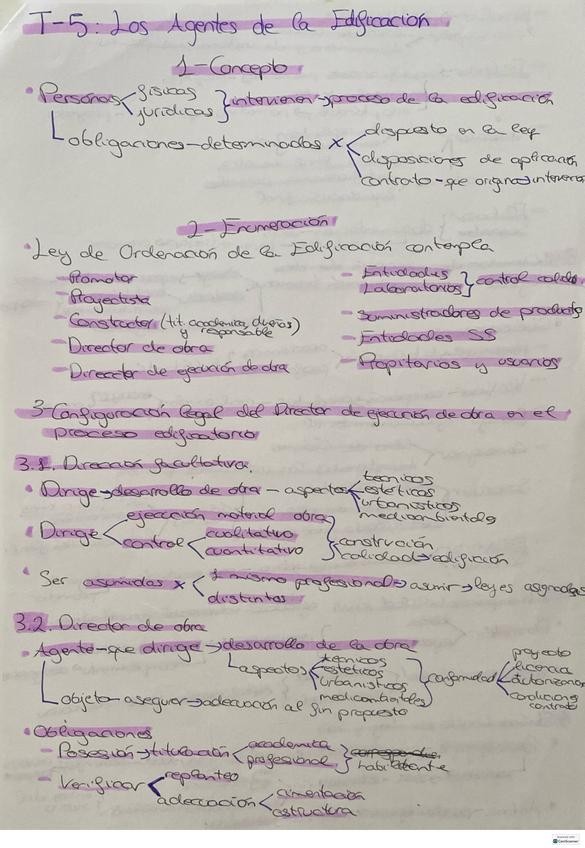 T-5: Los Agentes de la Edificación
1-Concepto
Personas físicas jurídicas } intervienen → proceso de la edificación
obligaciones-determinadas x dispuesto en la ley
disposiciones de aplicación
contrato - que origina intervenc
2-Enumeración
Ley de Ordenación de la Edificación contempla
- Promotor
- Proyectista
- Constructor (tit. académica, dueños y responsable)
- Director de obra
- Direcctor de ejecución de obra
- Entidades Laboratorios } control calida
- Suministradores de producto
- Entidades SS
- Propitarios y usuarios
3-Configuración legal del Director de ejecución de obra en el
proceso edificatorio
3.1. Dirección facultativa.
Dirige → desarrollo de obra - aspectos técnicos
estéticos
urbanísticos
medioambientales
Dirige ejecución material obra
control cualitativo
cuantitativo
} construcción
calidad → edificación
Ser asumidas x 1 mismo profesional → asumir → leyes asignadas
distintos
3.2. Director de obra
Agente - que dirige → desarrollo de la obra
aspectos técnicos
estéticos
urbanísticos
medioambientales
} conformidad proyecto
licencia
autorizacion
condiciones
contrato
objeto - asegurar → adecuación al fin propuesto
Obligaciones
- Posesión → titulación académica
profesional } habilitante
- Verificar replanteo
adecuación cimentación
estructura
CamScanner